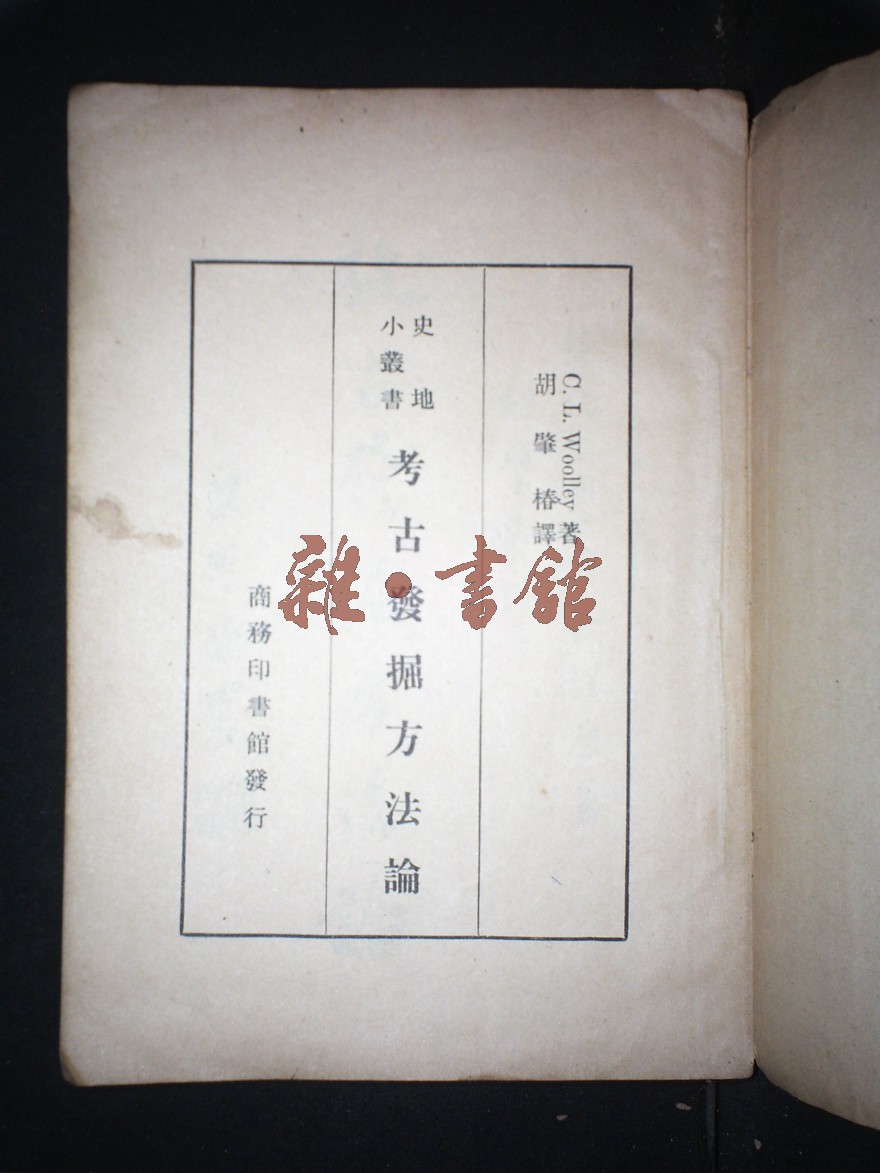 C. L. Woolley 著
胡肇椿譯
史地
小叢書
考古發掘方法論
商務印書館發行
雜·書館